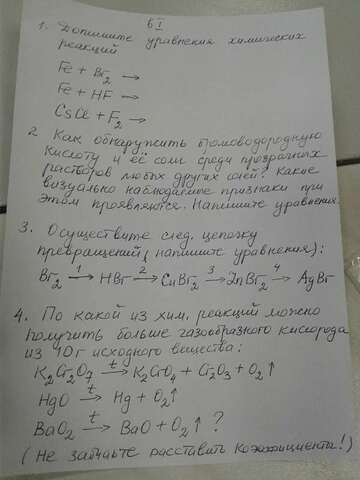 6 I
1. Допишите уравнения химических
реакций
Fe + Br₂ →
Fe + HF →
CsCl + F₂ →
2. Как обнаружить бромоводородную
кислоту и её соли среди прозрачных
растворов любых других солей? Какие
визуально наблюдаемые признаки при
этом проявляются. Напишите уравнения.
3. Осуществите след. цепочку
превращений (напишите уравнения):
Br₂ →¹ HBr →² CuBr₂ →³ ZnBr₂ →⁴ AgBr
4. По какой из хим. реакций можно
получить больше газообразного кислорода
из 10 г исходного вещества:
K₂Cr₂O₇ →ᵗ K₂CrO₄ + Cr₂O₃ + O₂↑
HgO →ᵗ Hg + O₂↑
BaO₂ →ᵗ BaO + O₂↑ ?
(Не забудьте расставить коэффициенты!)